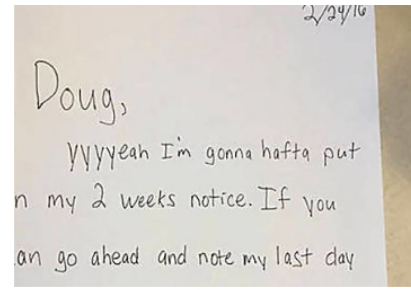 2/24/16
Doug,
yyyyeah I'm gonna hafta put
n my 2 weeks notice. If you
an go ahead and note my last day